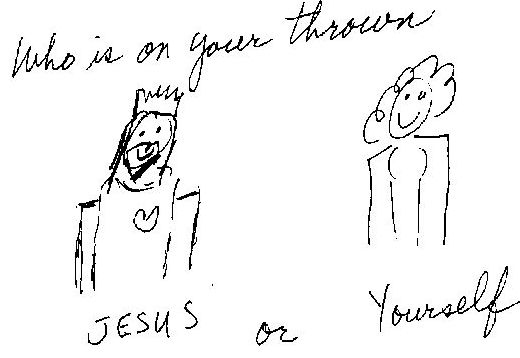 Who is on your thrown
JESUS or Yourself